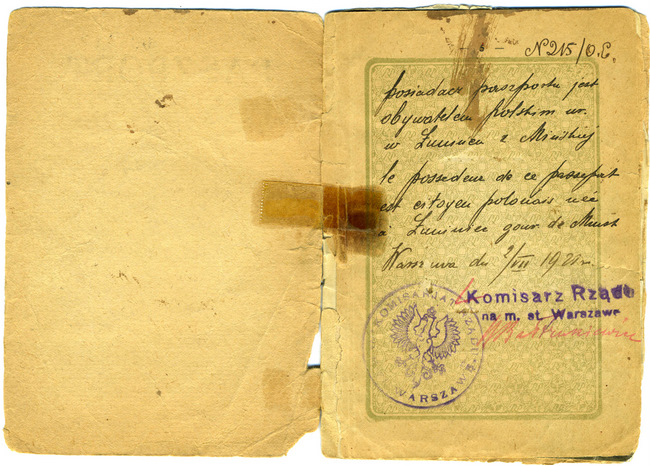 - 3 -
N 215/O.C.
posiadacz paszportu jest
obywatelem polskim ur.
w Łunincu z Mińskiej
le possedeur de ce passeport
est citoyen polonais née
à Luniniec gouv de Minsk
Warszawa dn 2/VII 1921 r.
Komisarz Rządu
na m. st. Warszawę
KOMISARJAT RZĄDU
WARSZAWS